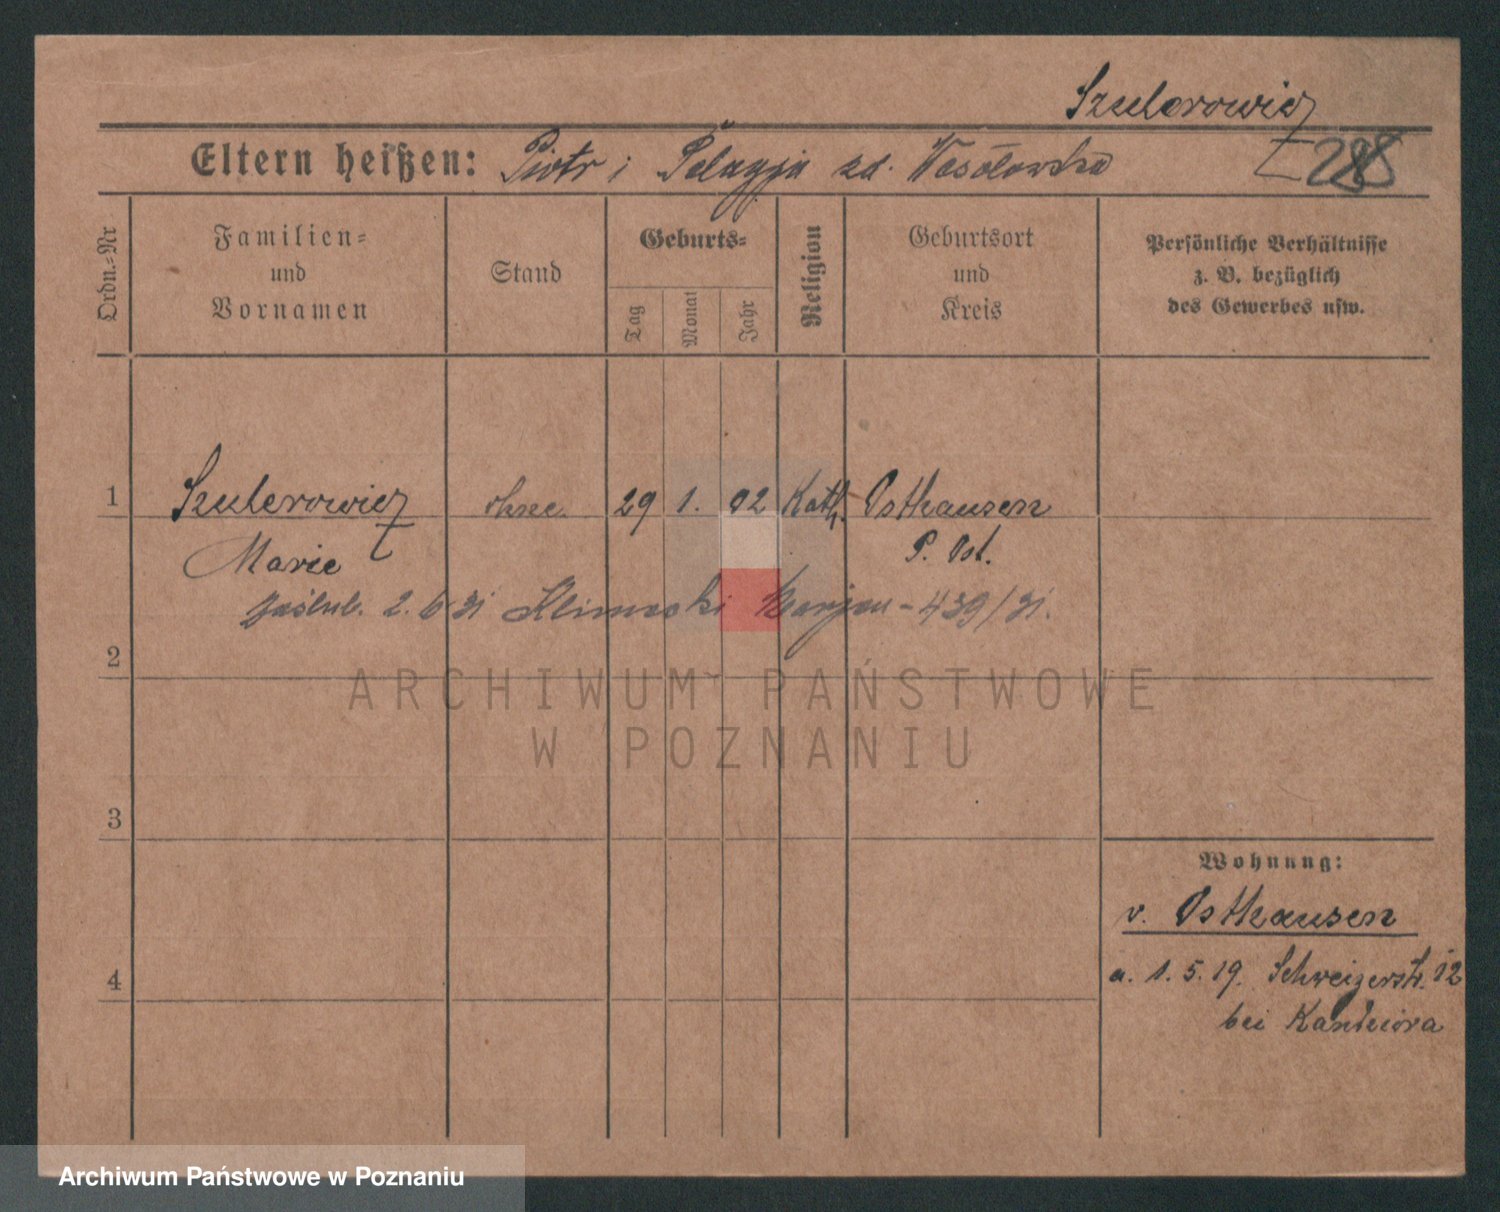 Szulerowicz
Eltern heißen: Piotr i Pelagja zd. Wesołowska 288
Ordn.-Nr
Familien-
und
Vornamen
Stand
Geburts-
Tag
Monat
Jahr
Religion
Geburtsort
und
Kreis
Persönliche Verhältnisse
z. B. bezüglich
des Gewerbes usw.
1 Szulerowicz ohne. 29 1. 02 Kath. Osthausen
Marie P. Ost.
zaślub. 2.6.31 Klimacki Marjan - 439/31.
2
ARCHIWUM PAŃSTWOWE
W POZNANIU
3
Wohnung:
v. Osthausen
4
a. 1. 5. 19. Schweizerstr. 12
bei
Archiwum Państwowe w Poznaniu